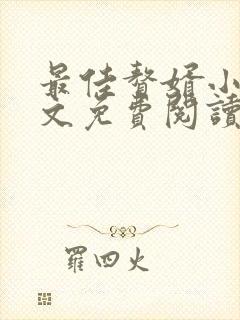 最佳贅婿小
文免費閱讀
羅四火